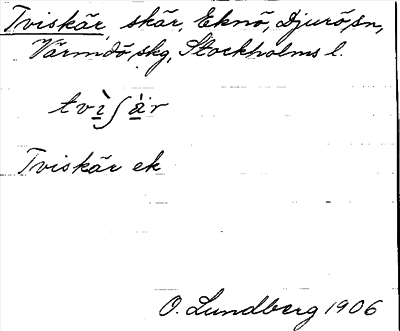 Tviskär, skär, Eknö, Djurö sn,
Värmdö skg, Stockholms l.
tvìʃä̀r
Tviskär ek
O. Lundberg 1906